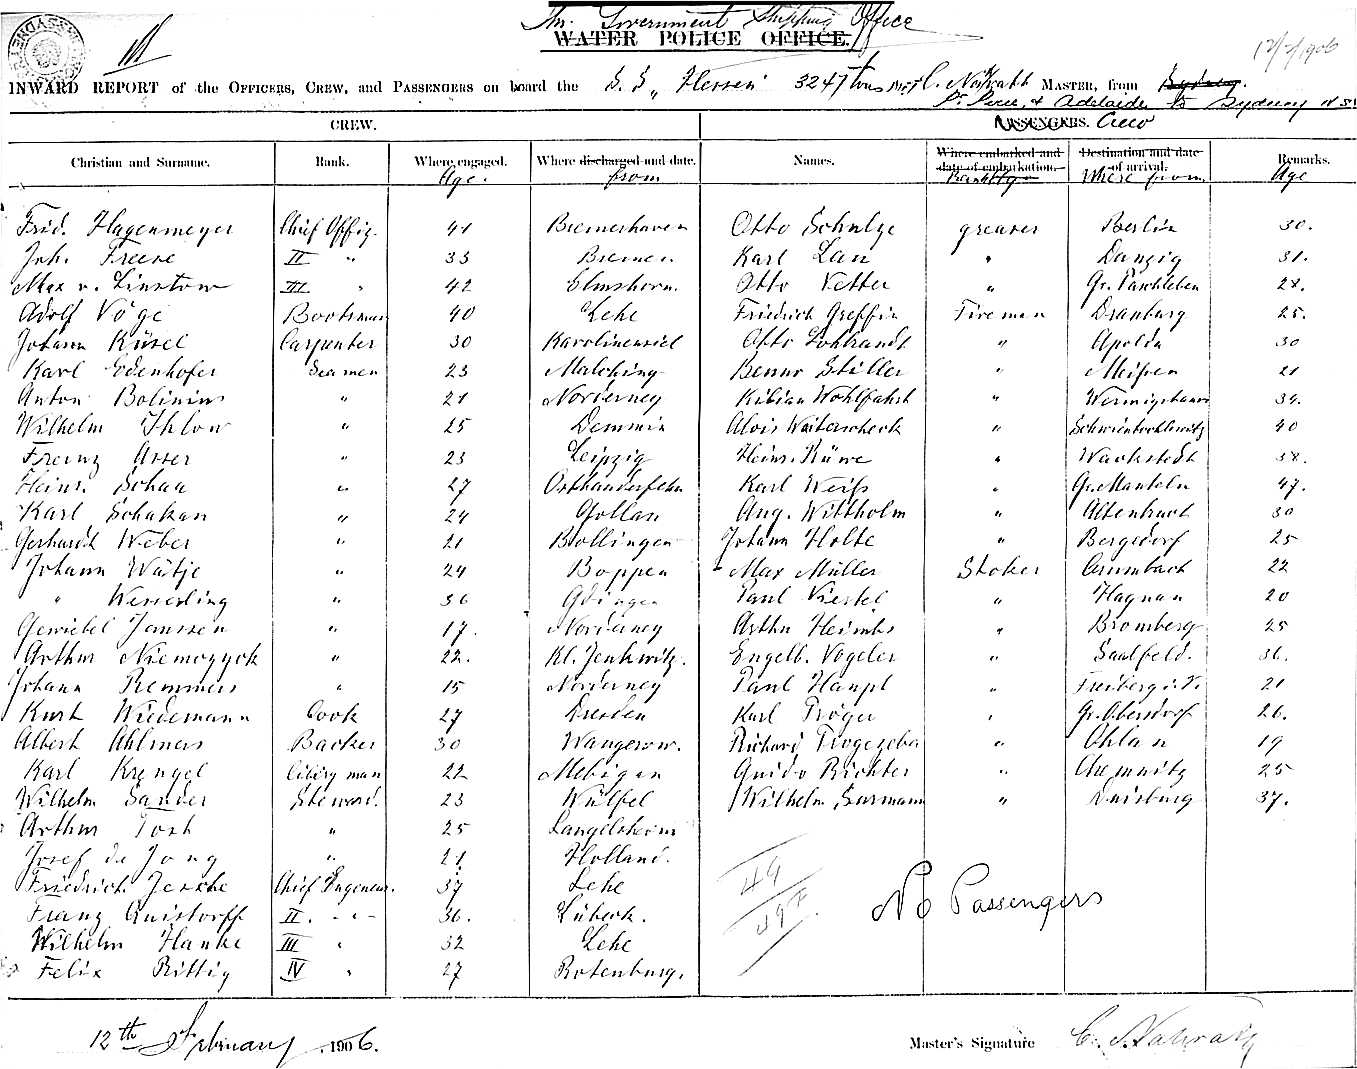 The Government Shipping Office
WATER POLICE OFFICE.
12/2/1906
INWARD REPORT of the OFFICERS, CREW, and PASSENGERS on board the S. S. "Hessen" 3247 tons C. MASTER, from Sydney.
Pt. Pirie, & Adelaide to Sydney N S W
CREW. PASSENGERS. Crew
Christian and Surname. Rank. Where engaged. Where discharged and date. Names. Where embarked and date of embarkation. Destination and date of arrival. Remarks.
Age. from Where from. Age
Frid. Hagenmeyer Chief Offiz. 41 Bremerhaven Otto Schulze greaser Berlin 30.
Joh. Freese II " 33 Bremen Karl Lau " Danzig 31.
Max v. Linstow III " 42 Elmshorn. Otto Vetter " Gr. Paschleben 28.
Adolf Vöge Bootsman 40 Lehe Friedrich Greffin Fireman Dramburg 25.
Johann Küsel Carpenter 30 Karolinensiel Otto " Apolda 30
Karl Edenhofer Seamen 23 Malching Benno Stiller " Meißen 21
Anton Bolinius " 21 Norderney Kilian Wohlfahrt " 34.
Wilhelm Ihlow " 25 Demmin Alois " Schwientochlowitz 40
Franz Asser " 23 Leipzig Heinr. Rüwe " Warkstedt 38.
Heinr. Schaa " 27 Osthauderfehn Karl Weiß " 47.
Karl Schakan " 24 Gollan Aug. Wittholm " Altenbuch 30
Gerhardt Weber " 21 Bollingen Johann Holte " Bergsdorf 25
Johann Wätje " 24 Boppen Max Müller Stoker Crumbach 22
" Wesserling " 36 Paul " Hagnau 20
Janssen " 17. Norderney Arthu Heimbs " Bromberg 25
Arthur Niemczyck " 22. Kl. Jenkwitz. Engelb. Vogeler " Saalfeld. 36.
Johann Remmers " 15 Norderney Paul Haupt " Freiberg i. S. 21
Kurt Wiedemann Cook 27 Dresden Karl Tröger " Gr. Obersdorf 26.
Albert Ahlmers Backer 30 Wangerow. Richard " Ohlau 19
Karl Krengel 22 Guido Richter " Chemnitz 25
Wilhelm Sander Steward. 23 Wülfel Wilhelm Surmann " Duisburg 37.
Arthur Tosh " 25 Langelsheim
Josef de Jong " 21 Holland.
Friedrich Jesche Chief Ingeneur. 37 Lehe
Franz Quistorff II. " 36. Lübeck.
Wilhelm Hanke III " 32 Lehe
Felix Rittig IV " 27 Rotenburg.
49
No Passengers
12th February 1906.
Master's Signature C.